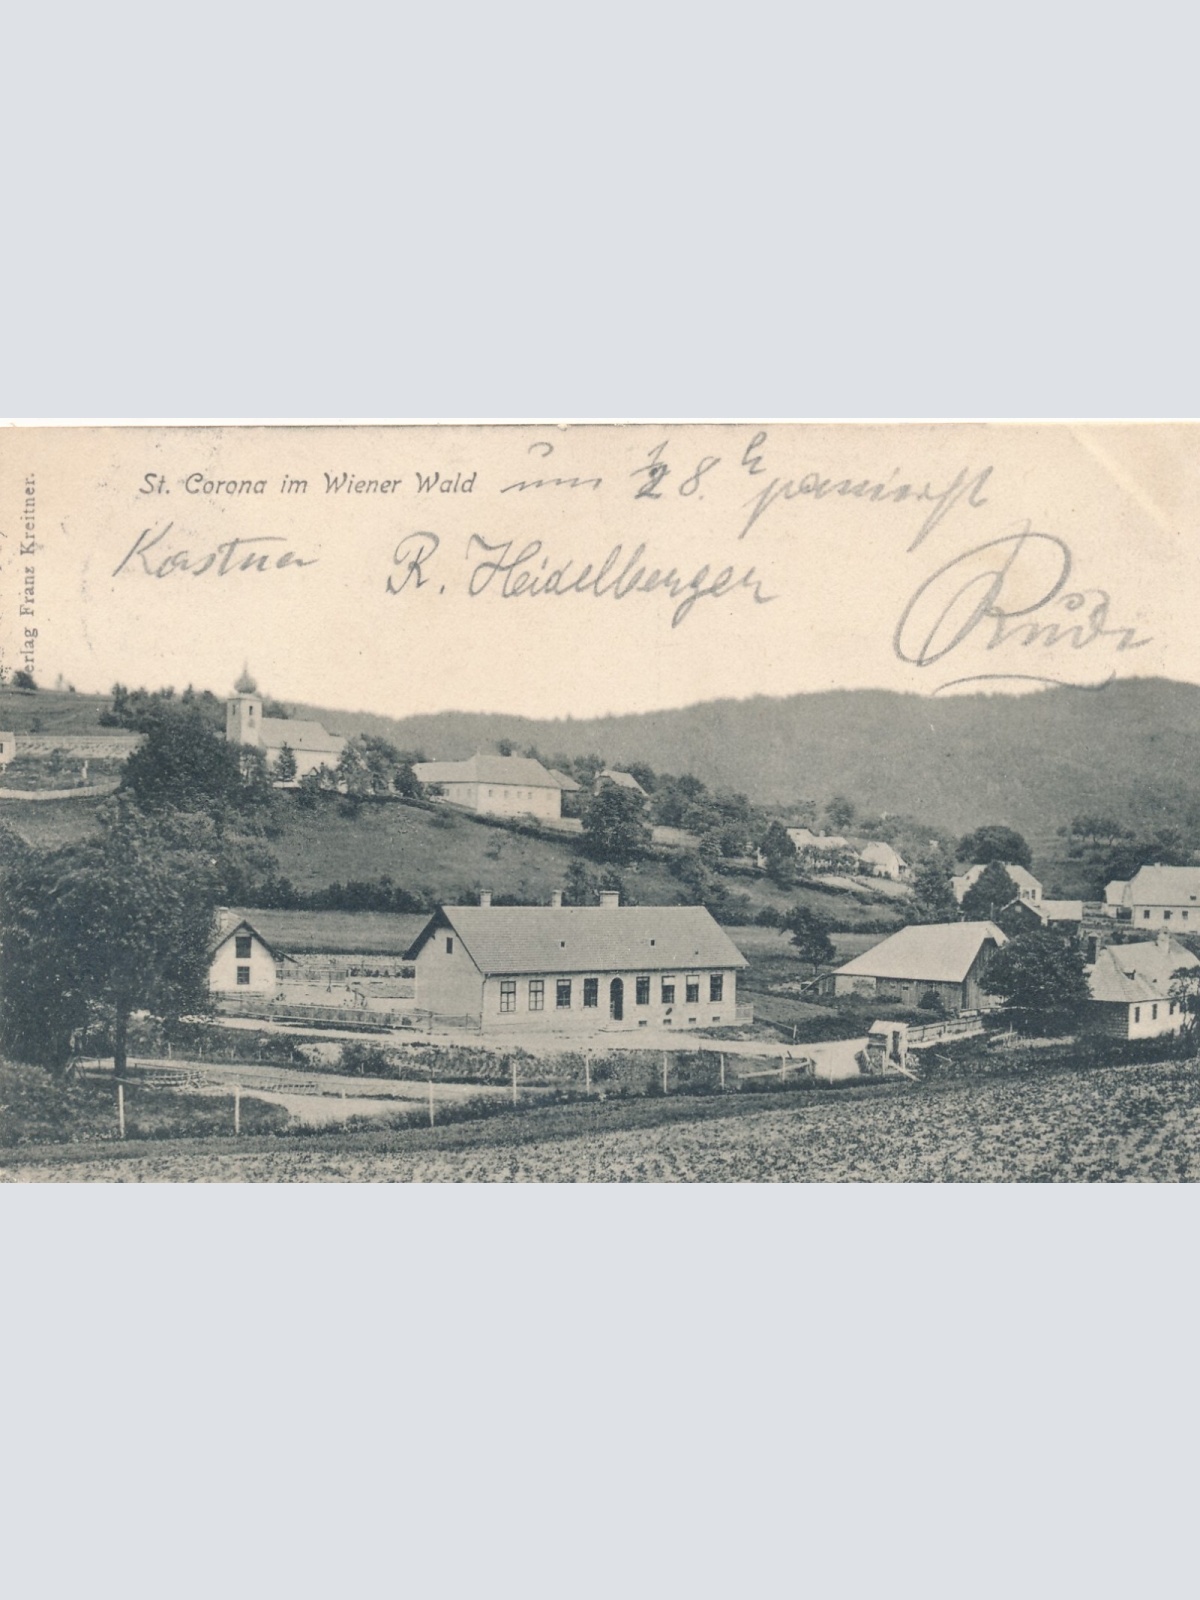 St. Corona im Wiener Wald um ½ 8. h passiert
Kastner R. Heidelberger Rudi
erlag Franz Kreitner.